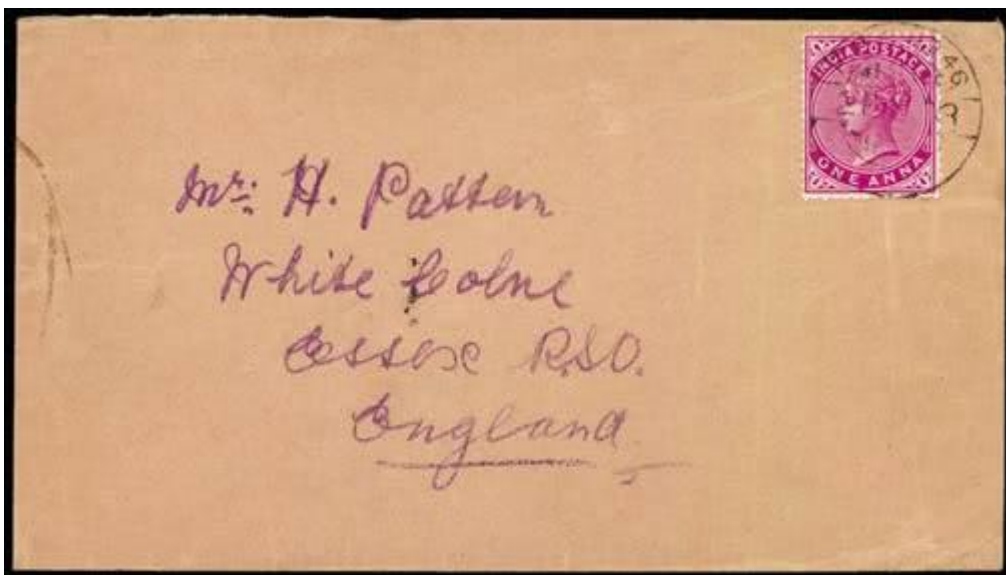 INDIA POSTAGE
46
ONE ANNA
Mr: H. Pattern
White Colne
Essex R.S.O.
England